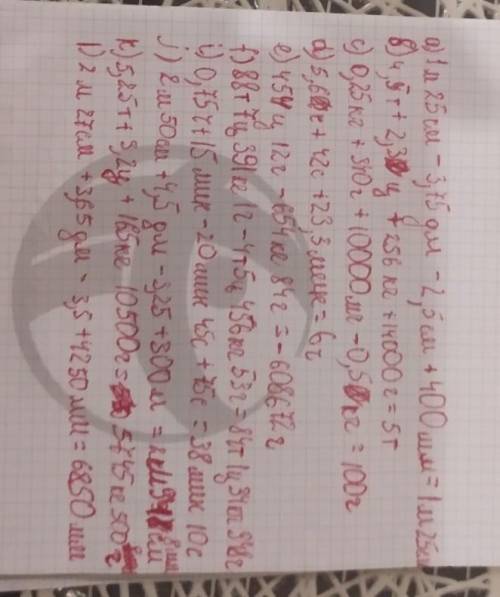 a) 1м 25см - 3,75дм - 2,5см + 400мм = 1м 25см
b) 4,5т + 2,3ц + 256 кг + 14000г = 5т
c) 0,25кг + 340г + 10000мг - 0,5кг = 100г
d) 5,6ч + 42с + 23,3мин = 6ч
e) 45ц 12г - 654кг 84г = - 608672г
f) 88т 7ц 391кг 1г - 4т 5ц 456кг 53г = 84т 1ц 34кг 948г
i) 0,75ч + 15 мин - 20мин 45с + 75с = 38 мин 10с
j) 2м 50см + 4,5 дм - 3,25 + 300м =
k) 5,25т + 3,2ц + 165кг - 10500г = 5745кг 500г
l) 2м 27см + 3,65дм - 3,5 + 4250мм = 6850мм